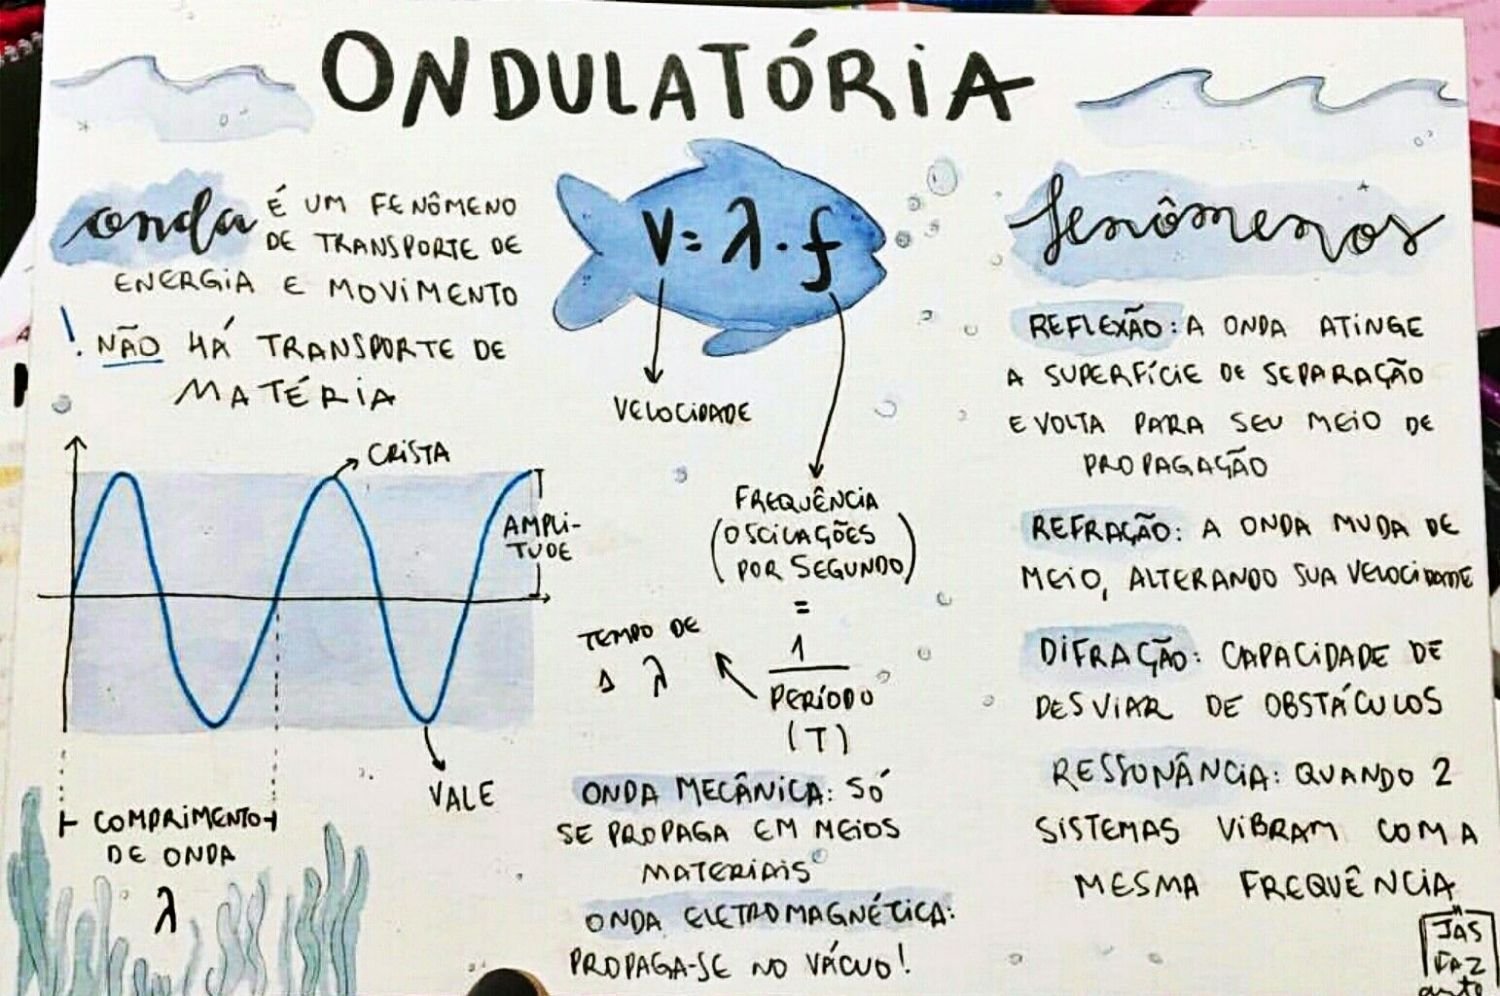 ONDULATÓRIA
onda É UM FENÔMENO
DE TRANSPORTE DE
ENERGIA E MOVIMENTO
! NÃO HÁ TRANSPORTE DE
MATÉRIA
CRISTA
AMPLI-
TUDE
VALE
COMPRIMENTO
DE ONDA
λ
V = λ . f
VELOCIDADE
FREQUÊNCIA
(OSCILAÇÕES
POR SEGUNDO)
=
1
PERÍODO
(T)
TEMPO DE
1 λ
ONDA MECÂNICA: SÓ
SE PROPAGA EM MEIOS
MATERIAIS
ONDA ELETROMAGNÉTICA:
PROPAGA-SE NO VÁCUO!
fenômenos
REFLEXÃO: A ONDA ATINGE
A SUPERFÍCIE DE SEPARAÇÃO
E VOLTA PARA SEU MEIO DE
PROPAGAÇÃO
REFRAÇÃO: A ONDA MUDA DE
MEIO, ALTERANDO SUA VELOCIDADE
DIFRAÇÃO: CAPACIDADE DE
DESVIAR DE OBSTÁCULOS
RESSONÂNCIA: QUANDO 2
SISTEMAS VIBRAM COM A
MESMA FREQUÊNCIA
JAS